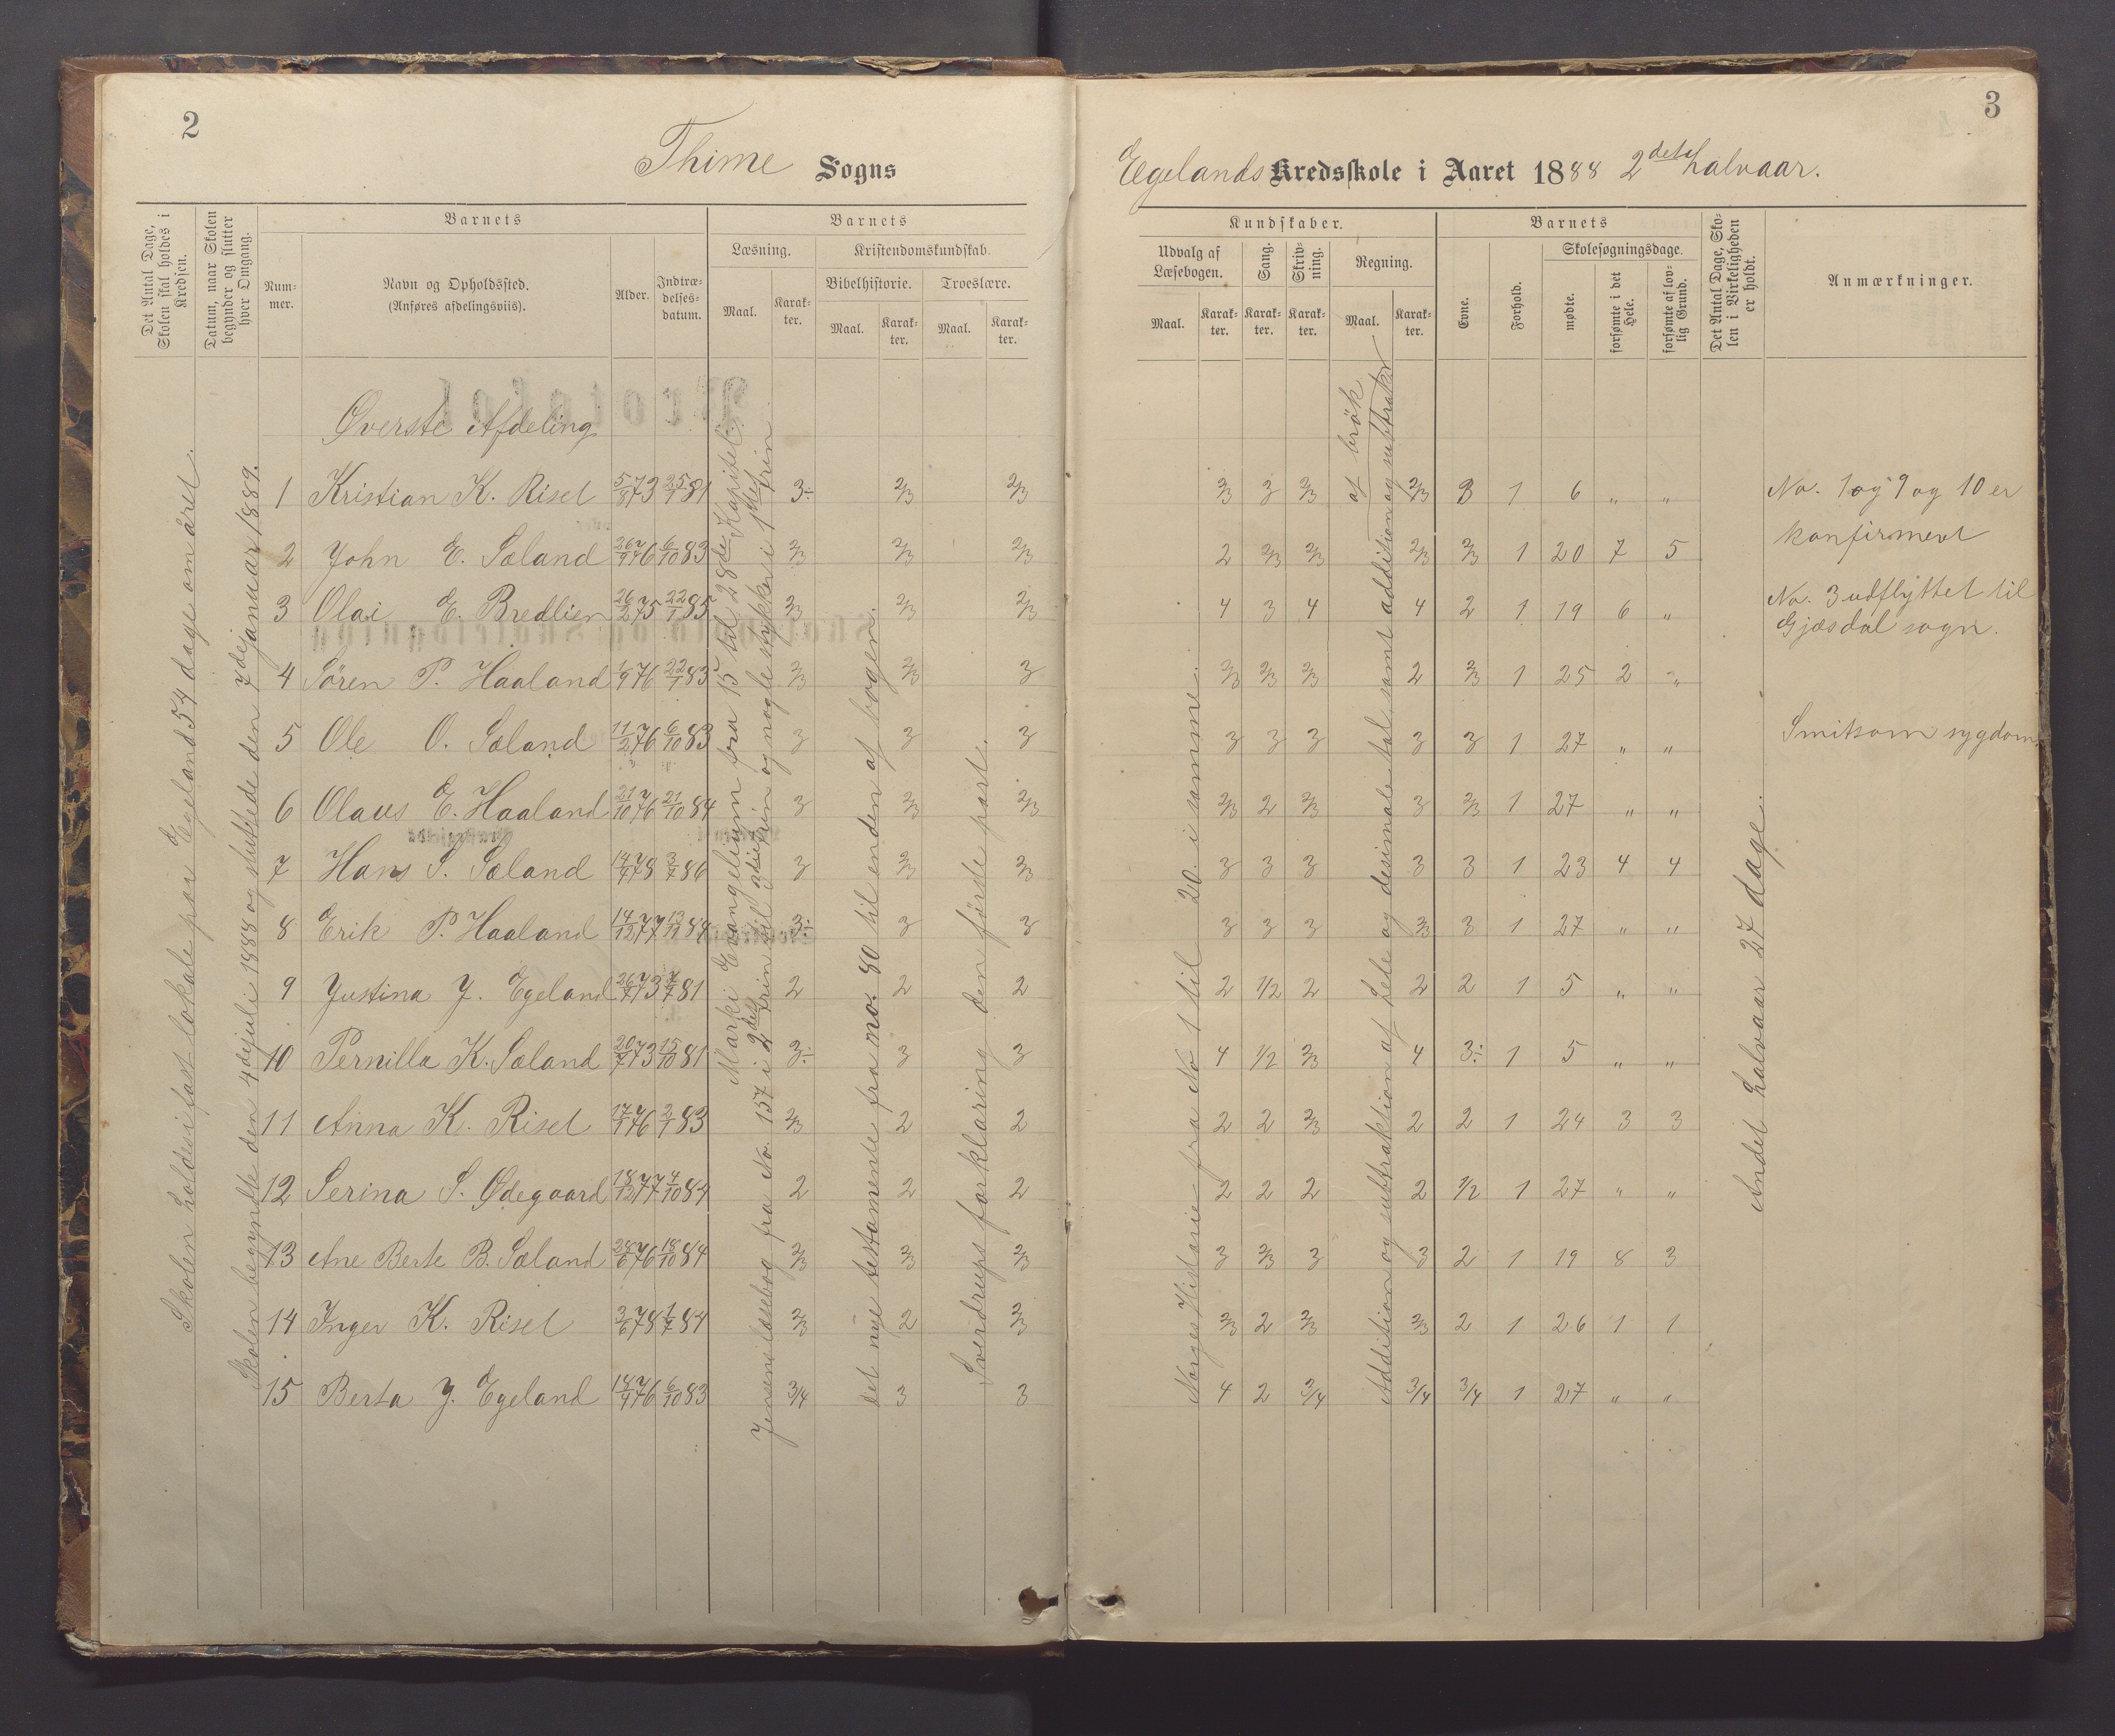 2
Thime Sogns
Det Antal Dage, Skolen skal holdes i Kredsen.
Datum, naar Skolen begynder og slutter hver Omgang.
Barnets
Nummer.
Navn og Opholdssted.
(Anføres afdelingsviis).
Alder.
Indtrædelsesdatum.
Barnets
Læsning.
Kristendomskundskab.
Bibelhistorie.
Troeslære.
Maal.
Karakter.
Maal.
Karakter.
Maal.
Karakter.
Øverste Afdeling
1 Kristian K. Risel 5/8 73 25/1 81 3÷ 2/3 2/3
2 John E. Sæland 26/9 76 6/10 83 2/3 2/3 2/3
3 Olai E. Bredlien 26/2 75 22/1 85 2/3 2/3 2/3
4 Søren P. Haaland 1/9 76 22/1 85 2/3 2/3 3
5 Ole O. Sæland 11/2 76 6/10 83 3 3 3
6 Olaus E. Haaland 21/10 76 21/10 84 3 2/3 2/3
7 Hans S. Sæland 14/4 78 3/7 86 3 2/3 2/3
8 Erik P. Haaland 14/12 77 13/11 84 3÷ 3 3
9 Justina J. Egeland 26/7 73 7/7 81 2 2 2
10 Pernilla K. Sæland 20/7 73 15/10 81 3÷ 3 3
11 Anna K. Risel 17/1 76 2/1 83 2/3 2 2
12 Serina S. Ødegaard 18/12 77 4/10 84 2 2 2
13 Ane Berte B. Sæland 28/6 76 18/10 84 2/3 2/3 2/3
14 Inger K. Risel 3/6 78 1/7 84 2/3 2 2/3
15 Berta J. Egeland 14/4 76 6/10 83 3/4 3 3
Skolen holdes i fast lokale paa Egeland 54 dage om året.
Skolen begynte den 4de juli 1888 og sluttede den 7de januar 1889.
Marki Evangelium fra 15 til 28de Kapitel.
Jensens læsebog fra No. 157 i 2det trin til 3die trin og nogle stykker i 1ste trin
det nye testamente fra no. 80 til enden af bogen.
Sverdrups forklaring den første part.
3
Egelands Kredsskole i Aaret 1888 2det halvaar.
Kundskaber.
Udvalg af Læsebogen.
Sang.
Skrivning.
Regning.
Maal.
Karakter.
Karakter.
Karakter.
Maal.
Karakter.
Barnets
Evne.
Forhold.
Skolesøgningsdage.
mødte.
forsømte i det Hele.
forsømte af lovlig Grund.
Det Antal Dage, Skolen i Virkeligheden er holdt.
Anmærkninger.
2/3 3 2/3 2/3 3 1 6 " "
2 2/3 2/3 2/3 2/3 1 20 7 5
4 3 4 4 2 1 19 6 "
2/3 2/3 2/3 2 2/3 1 25 2 "
3 3 3 3 3 1 27 " "
2/3 2 2/3 3 2/3 1 27 " "
3 3 3 3 3 1 23 4 4
3 3 3 2/3 3 1 27 " "
2 1/2 2 2 2 1 5 " "
4 1/2 2/3 4 3÷ 1 5 " "
2 2 2/3 2 2 1 24 3 3
2 2 2 2 1/2 1 27 " "
3 2/3 3 3 2 1 19 8 3
2/3 2 2/3 2/3 2 1 26 1 1
4 2 3/4 3/4 3/4 1 27 " "
Norges Historie fra No 1 til 20. i samme.
Addition og subtraktion af hele og desimale tal samt addition og subtraktion
af brøk
Andet halvaar 27 dage.
No. 1 og 9 og 10 er
konfirmert
No. 3 udflyttet til
Gjæsdal sogn.
Smitsom sygdom.